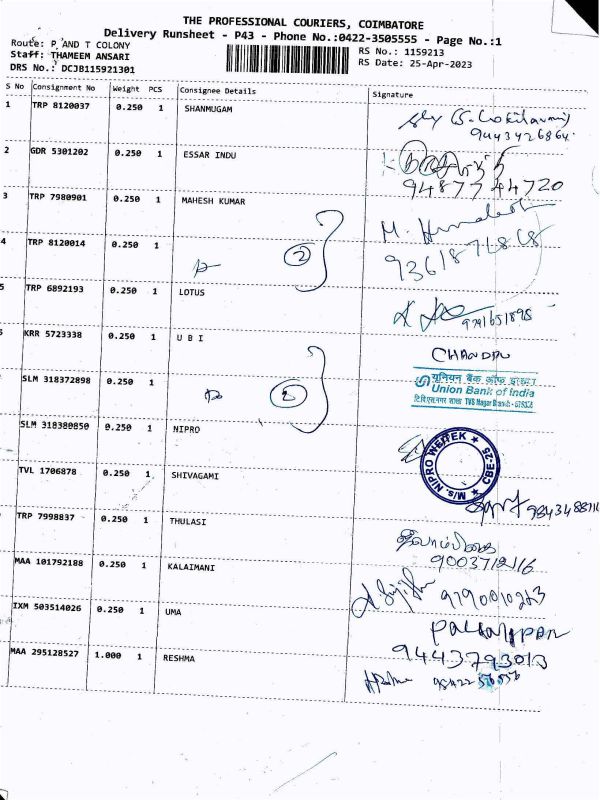 THE PROFESSIONAL COURIERS, COIMBATORE
Delivery Runsheet - P43 - Phone No.:0422-3505555 - Page No.:1
Route: P AND T COLONY
Staff: THAMEEM ANSARI
DRS No.: DCJB115921301
RS No.: 1159213
RS Date: 25-Apr-2023
S No Consignment No Weight PCS Consignee Details Signature
1 TRP 8120037 0.250 1 SHANMUGAM
9443426864
2 GDR 5301202 0.250 1 ESSAR INDU
9487744720
3 TRP 7980901 0.250 1 MAHESH KUMAR
M.
4 TRP 8120014 0.250 1
2
5 TRP 6892193 0.250 1 LOTUS
9791651895
KRR 5723338 0.250 1 U B I
CHANDRU
SLM 318372898 0.250 1
यूनियन बैंक ऑफ इंडिया
Union Bank of India
SLM 318380850 0.250 1 NIPRO
M/s. NIPRO WELTEK CBE-25
TVL 1706878 0.250 1 SHIVAGAMI
TRP 7998837 0.250 1 THULASI
MAA 101792188 0.250 1 KALAIMANI
IXM 503514026 0.250 1 UMA
9443793013
MAA 295128527 1.000 1 RESHMA